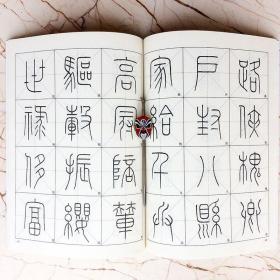 路俠槐卿
戶封八縣
家給千兵
高冠陪輦
驅轂振纓
世祿侈富